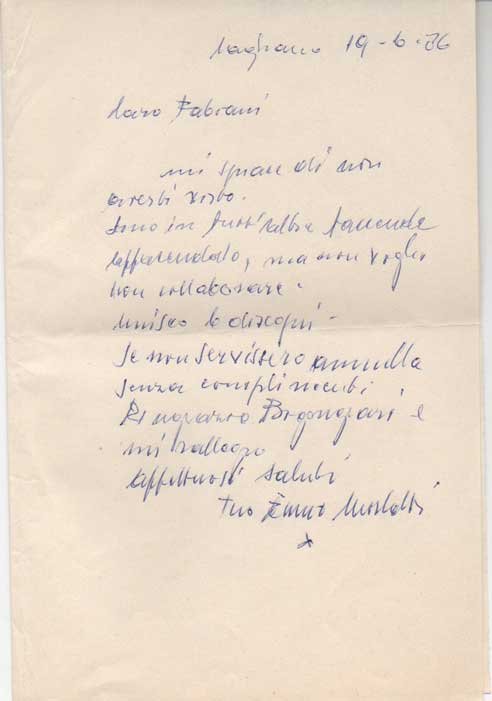 19-6-76
Caro Fabiani
mi spiace di non
averti visto.
Sono in tutt'altre faccende
affacendato, ma non voglio
non collaborare.
Unisco 6 disegni -
Se non servissero annulla
senza complimenti
Ringrazio Bigongiari e
mi rallegro
affettuosi saluti
tuo